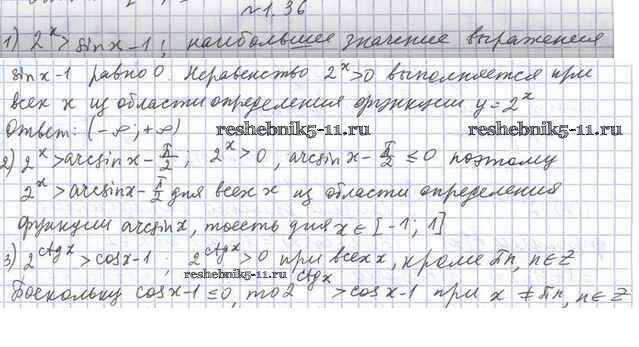 №1.36
1) 2^x > sin x - 1; наибольшее значение выражения
sin x - 1 равно 0. Неравенство 2^x > 0 выполняется при
всех x из области определения функции y = 2^x
Ответ: (-∞; +∞)
reshebnik5-11.ru
reshebnik5-11.ru
2) 2^x > arcsin x - π/2; 2^x > 0, arcsin x - π/2 ≤ 0 поэтому
2^x > arcsin x - π/2 для всех x из области определения
функции arcsin x, то есть для x ∈ [-1; 1]
3) 2^ctg x > cos x - 1; 2^ctg x > 0 при всех x, кроме πn, n ∈ Z
reshebnik5-11.ru
Поскольку cos x - 1 ≤ 0, то 2^ctg x > cos x - 1 при x ≠ πn, n ∈ Z